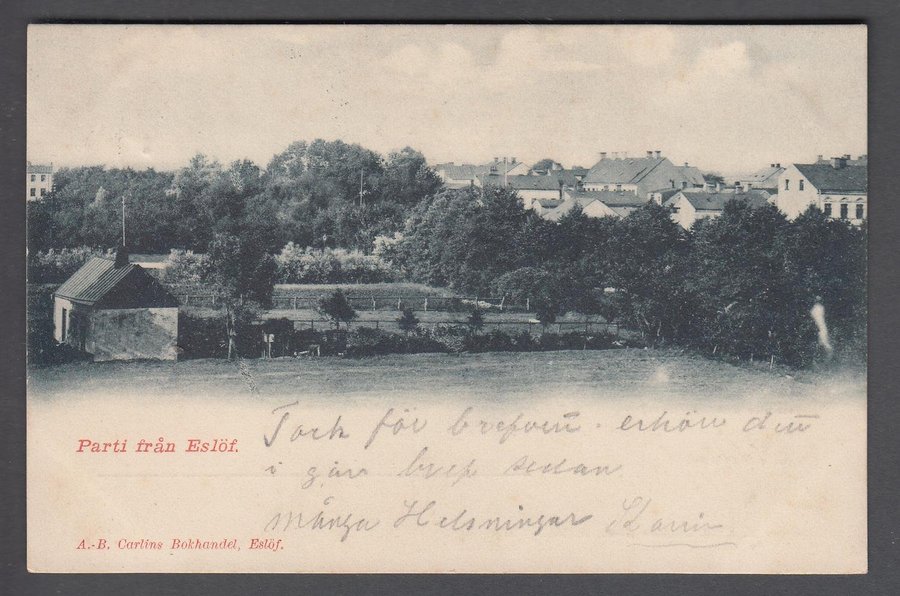 Parti från Eslöf.
Tack för brefven. erhöll dem
i går bref sedan
många Helsningar
A.-B. Carlins Bokhandel, Eslöf.